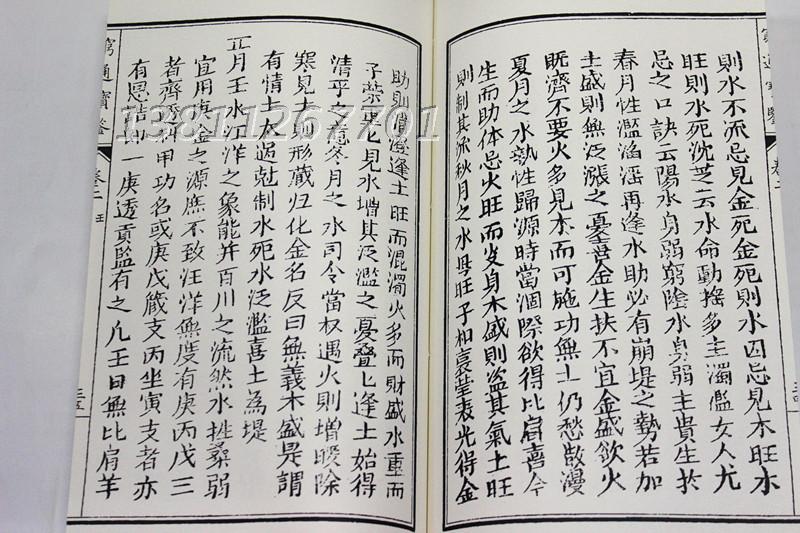 則水不流忌見金死金死則水困忌見木旺木
旺則水死沈芝云水命動搖多主濁濫女人尤
忌之口訣云陽水身弱窮陰水身弱主貴生於
春月性濫滔淫再逢水助必有崩堤之勢若加
土盛則無泛漲之憂喜金生扶不宜金盛欲火
既濟不要火多見木而可施功無土仍愁散漫
夏月之水執性歸源時當涸際欲得比肩喜金
生而助体忌火旺而 身木盛則盜其氣土旺
則制其流秋月之水母旺子相裏瑩表光得金
助則清澄逢土旺而混濁火多而財盛水重而
子榮重〻見水增其泛濫之憂疊〻逢土始得
清平之意冬月之水司令當权遇火則增暖除
寒見土則形藏归化金名反曰無義木盛是謂
有情土太過尅制水死水泛濫喜土為堤
正月壬水汪洋之象能并百川之流然水性柔弱
宜用庚金之源庶不致汪洋無度有庚丙戊三
者齊透科甲功名或庚戊藏支丙坐寅支者亦
有恩誥 一庚透貢監有之凡壬日無比肩羊
窮通寶鑒
卷二
壬
三五
窮通寶鑒
卷二
13811267701